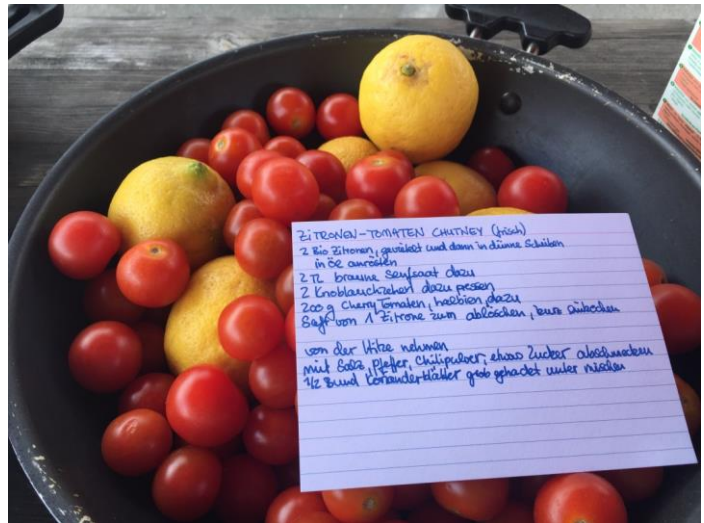 ZITRONEN-TOMATEN CHUTNEY (frisch)
2 Bio Zitronen, geviertelt und dann in dünne Scheiben
in Öl anrösten
2 TL braune Senfsaat dazu
2 Knoblauchzehen dazu pressen
200 g Cherry Tomaten, halbien, dazu
Saft von 1 Zitrone zum ablöschen, kurz einkochen
von der Hitze nehmen
mit Salz, Pfeffer, Chilipulver, etwas Zucker abschmecken
1/2 Bund Korianderblätter grob gehackt unter mischen